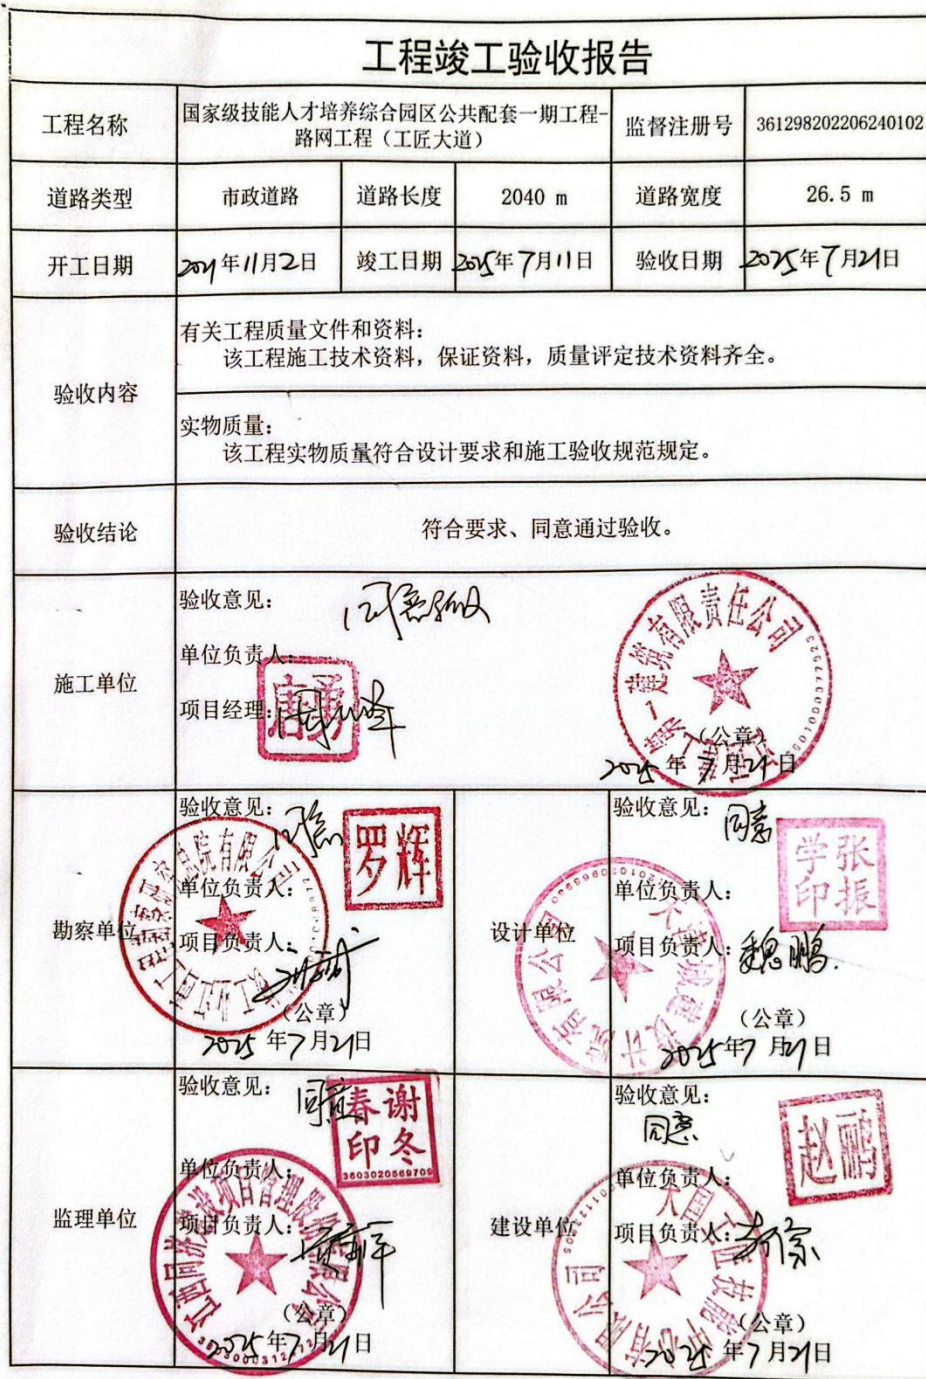 工程竣工验收报告
工程名称
国家级技能人才培养综合园区公共配套一期工程-
路网工程（工匠大道）
监督注册号
361298202206240102
道路类型
市政道路
道路长度
2040 m
道路宽度
26.5 m
开工日期
2021年11月2日
竣工日期
2025年7月11日
验收日期
2025年7月21日
验收内容
有关工程质量文件和资料：
该工程施工技术资料，保证资料，质量评定技术资料齐全。
实物质量：
该工程实物质量符合设计要求和施工验收规范规定。
验收结论
符合要求、同意通过验收。
施工单位
验收意见：
同意验收
单位负责人：
唐勇
项目经理：
建筑有限责任公司
（公章）
2025年7月21日
勘察单位
验收意见：
同意
罗辉
单位负责人：
项目负责人：
（公章）
2025年7月21日
设计单位
验收意见：
同意
张振学印
单位负责人：
项目负责人：魏鹏
（公章）
2025年7月21日
监理单位
验收意见：
同意
谢冬春印
3603020569709
单位负责人：
项目负责人：
（公章）
2025年7月21日
建设单位
验收意见：
同意
赵鹂
单位负责人：
项目负责人：
（公章）
2025年7月21日